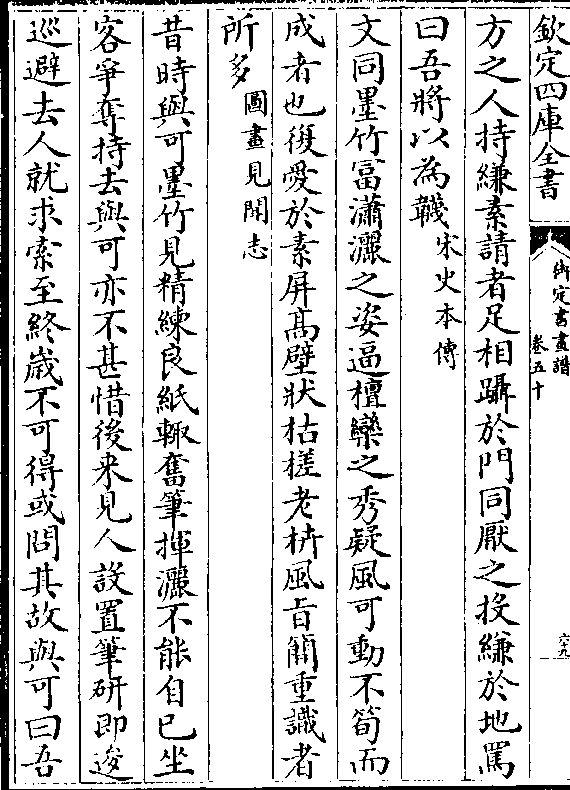 欽定四庫全書
御定書畫譜
卷五十
六九
方之人持縑素請者足相躡於門同厭之投縑於地罵
曰吾將以為韈宋史本傳
文同墨竹富瀟灑之姿逼檀欒之秀疑風可動不筍而
成者也復愛於素屏高壁狀枯槎老枿風旨簡重識者
所多圖畫見聞志
昔時與可墨竹見精練良紙輙奮筆揮灑不能自已坐
客爭奪持去與可亦不甚惜後来見人設置筆研即逡
巡避去人就求索至終歲不可得或問其故與可曰吾